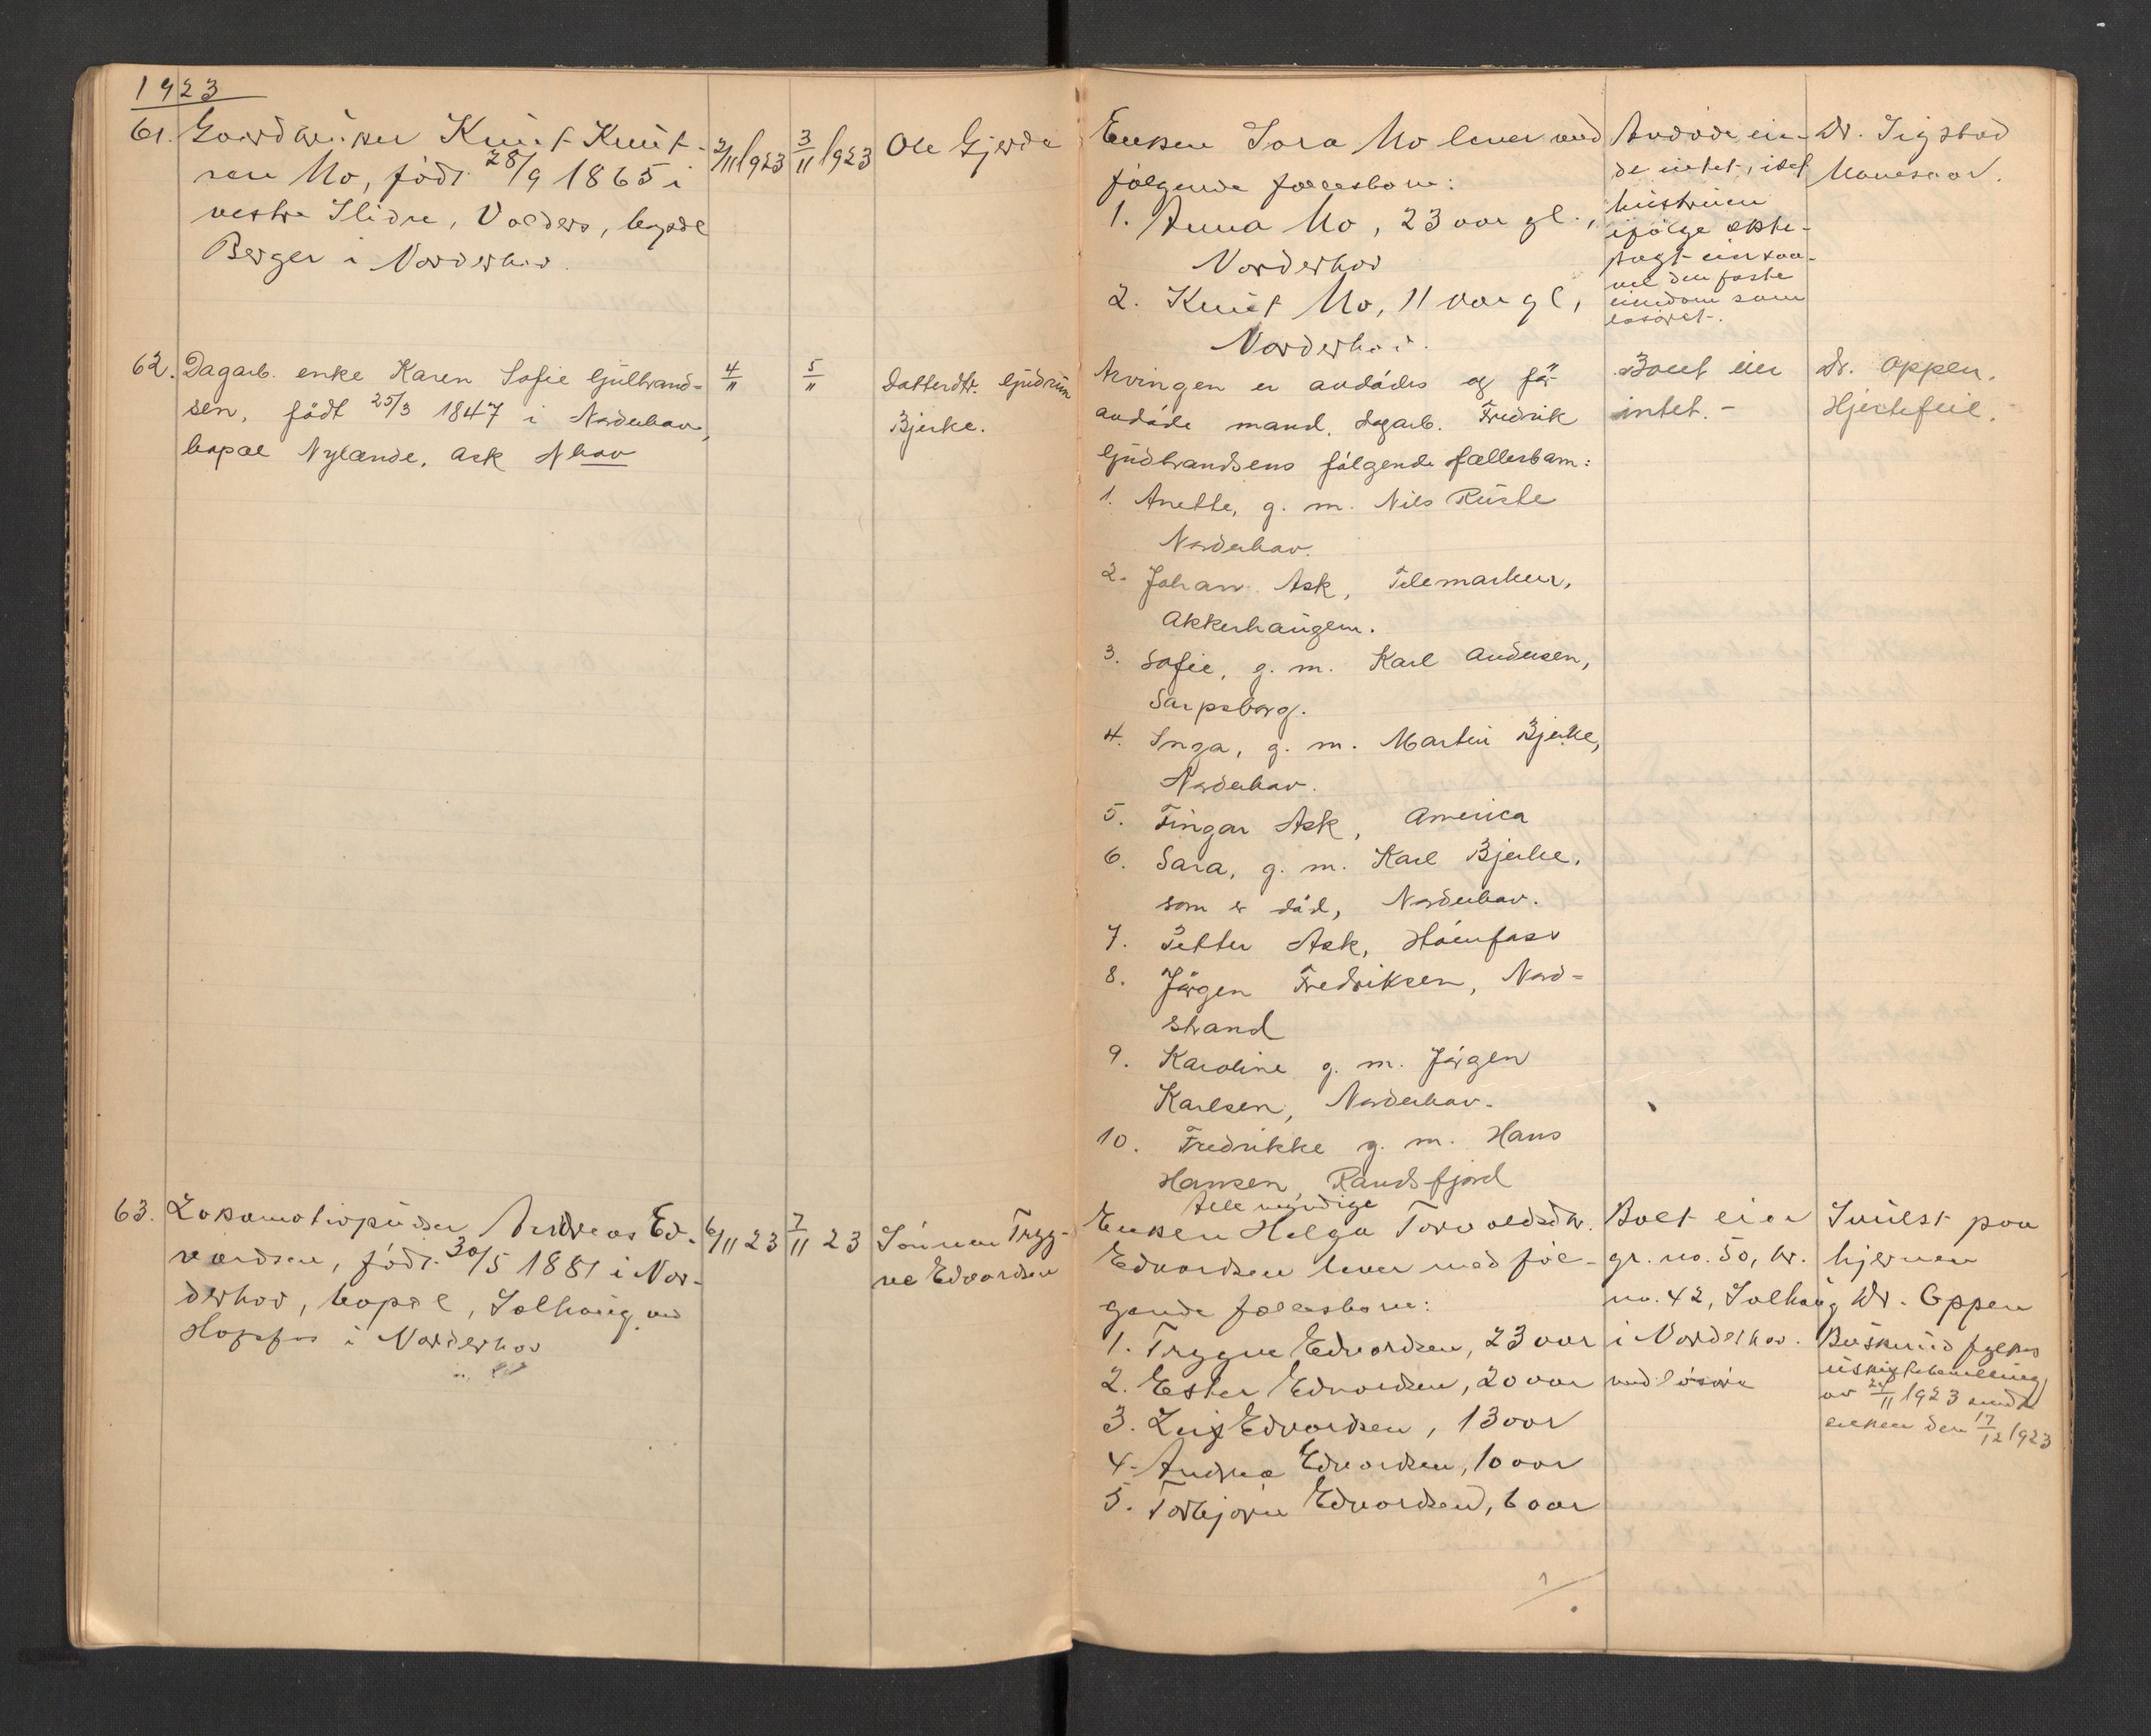 1923
61. Gaardbruker Knut Knut-
sen Mo, født 28/9 1865 i
vestre Slidre, Valders, bopæl
Berger i Norderhov.
2/11 1923
3/11 1923
Ole Gjerde
Enken Sara Mo lever med
følgende fællesbarn:
1. Anna Mo, 23 aar gl.,
Norderhov
2. Knut Mo, 11 aar gl,
Norderhov.
Avdøde ei-
de intet, idet
hustruen
ifølge ekte-
pagt eier saa-
vel den faste
eiendom som
løsøret.
Dr. Sigstad
62. Dagarb. enke Karen Sofie Gulbrand-
sen, født 25/3 1847 i Norderhov,
bopæl Nylænde, Ask Nhov
4/11
5/11
Datterdtr. Gudrun
Bjerke.
Arvingen er avdødes og før
avdøde mand, dagarb. Fredrik
Gudbrandsens følgende fællesbarn:
1. Anette, g. m. Nils Ruste
Norderhov.
2. Johan Ask, Telemarken,
Akkerhaugen.
3. Sofie, g. m. Karl Andersen,
Sarpsborg.
4. Inga, g. m. Martin Bjerke,
Norderhov.
5. Fingar Ask, America
6. Sara, g. m. Karl Bjerke,
som er død, Norderhov.
7. Petter Ask, Hønefoss
8. Jørgen Fredriksen, Nord-
strand
9. Karoline g. m. Jørgen
Karlsen, Norderhov.
10. Fredrikke g. m. Hans
Hansen, Randsfjord
Alle myndige
Boet eier
intet. -
Dr. Oppen.
Hjertefeil.
63. Lokomotivpudser Andreas Ed-
vardsen, født 30/5 1881 i Nor-
derhov, bopæl, Solhaug ved
Hofsfos i Norderhov
6/11 23
7/11 23
Sønnen Tryg-
ve Edvardsen
Enken Helga Torvaldsdtr.
Edvardsen lever med føl-
gende fællesbarn:
1. Trygve Edvardsen, 23 aar
2. Ester Edvardsen, 20 aar
3. Leif Edvardsen, 13 aar
4. Andrea Edvardsen, 10 aar
5. Torbjørn Edvardsen, 6 aar
Boet eier
gr. no. 50, br.
no. 42, Solhaug
i Norderhov.
med løsøre
Svulst paa
hjernen
Dr. Oppen
Buskerud fylkes
uskiftebevilling
av 24/11 1923 sendt
enken den 17/12 1923